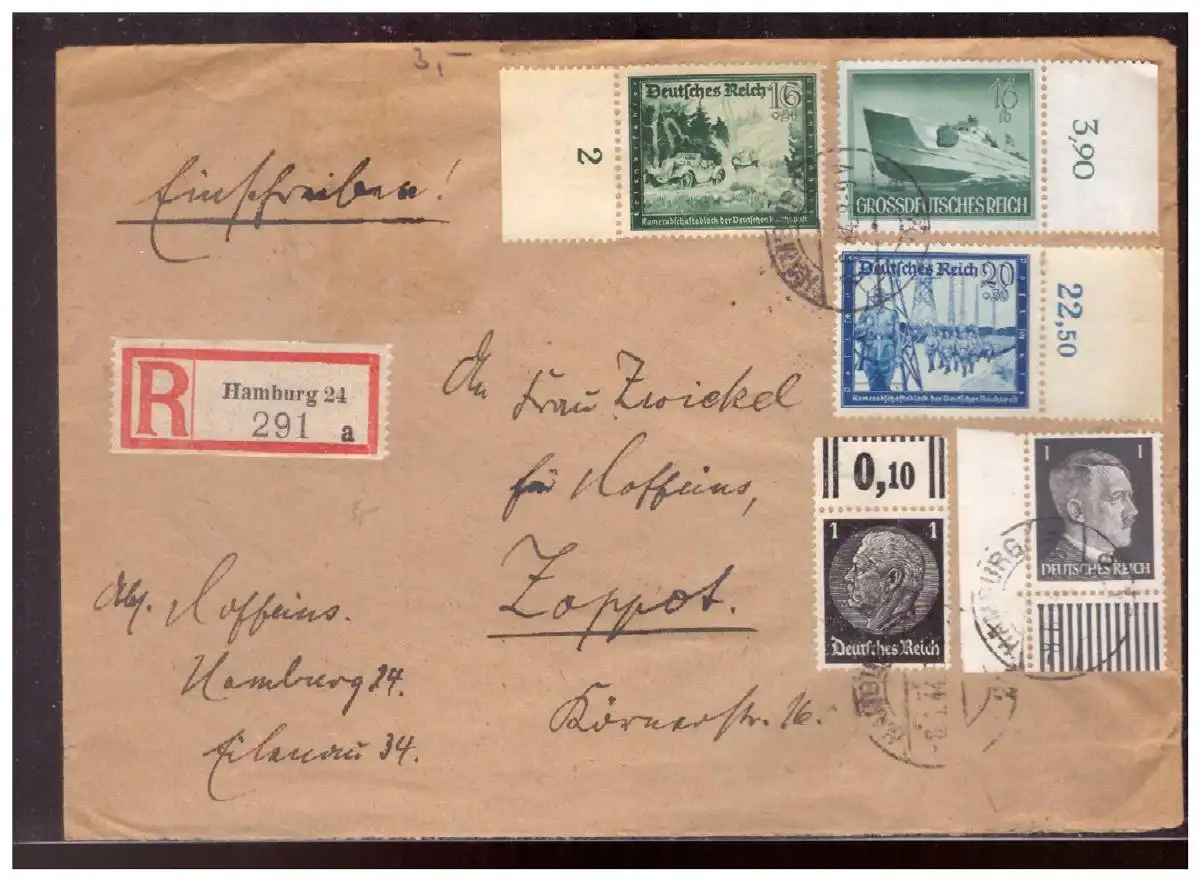 3,-
Einschreiben!
2
Deutsches Reich 16
Kameradschaftsblock der Deutschen Reichspost
16
GROSSDEUTSCHES REICH
3,90
Deutsches Reich 20
Kameradschaftsblock der Deutschen Reichspost
22,50
R
Hamburg 24
291 a
An
Frau Zwickel
für Hoffeins,
Zoppot.
Körnerstr. 16.
0,10
1
Deutsches Reich
1 1
DEUTSCHES REICH
HAMBURG
Abs. Hoffeins.
Hamburg 24.
Eilenau 34.